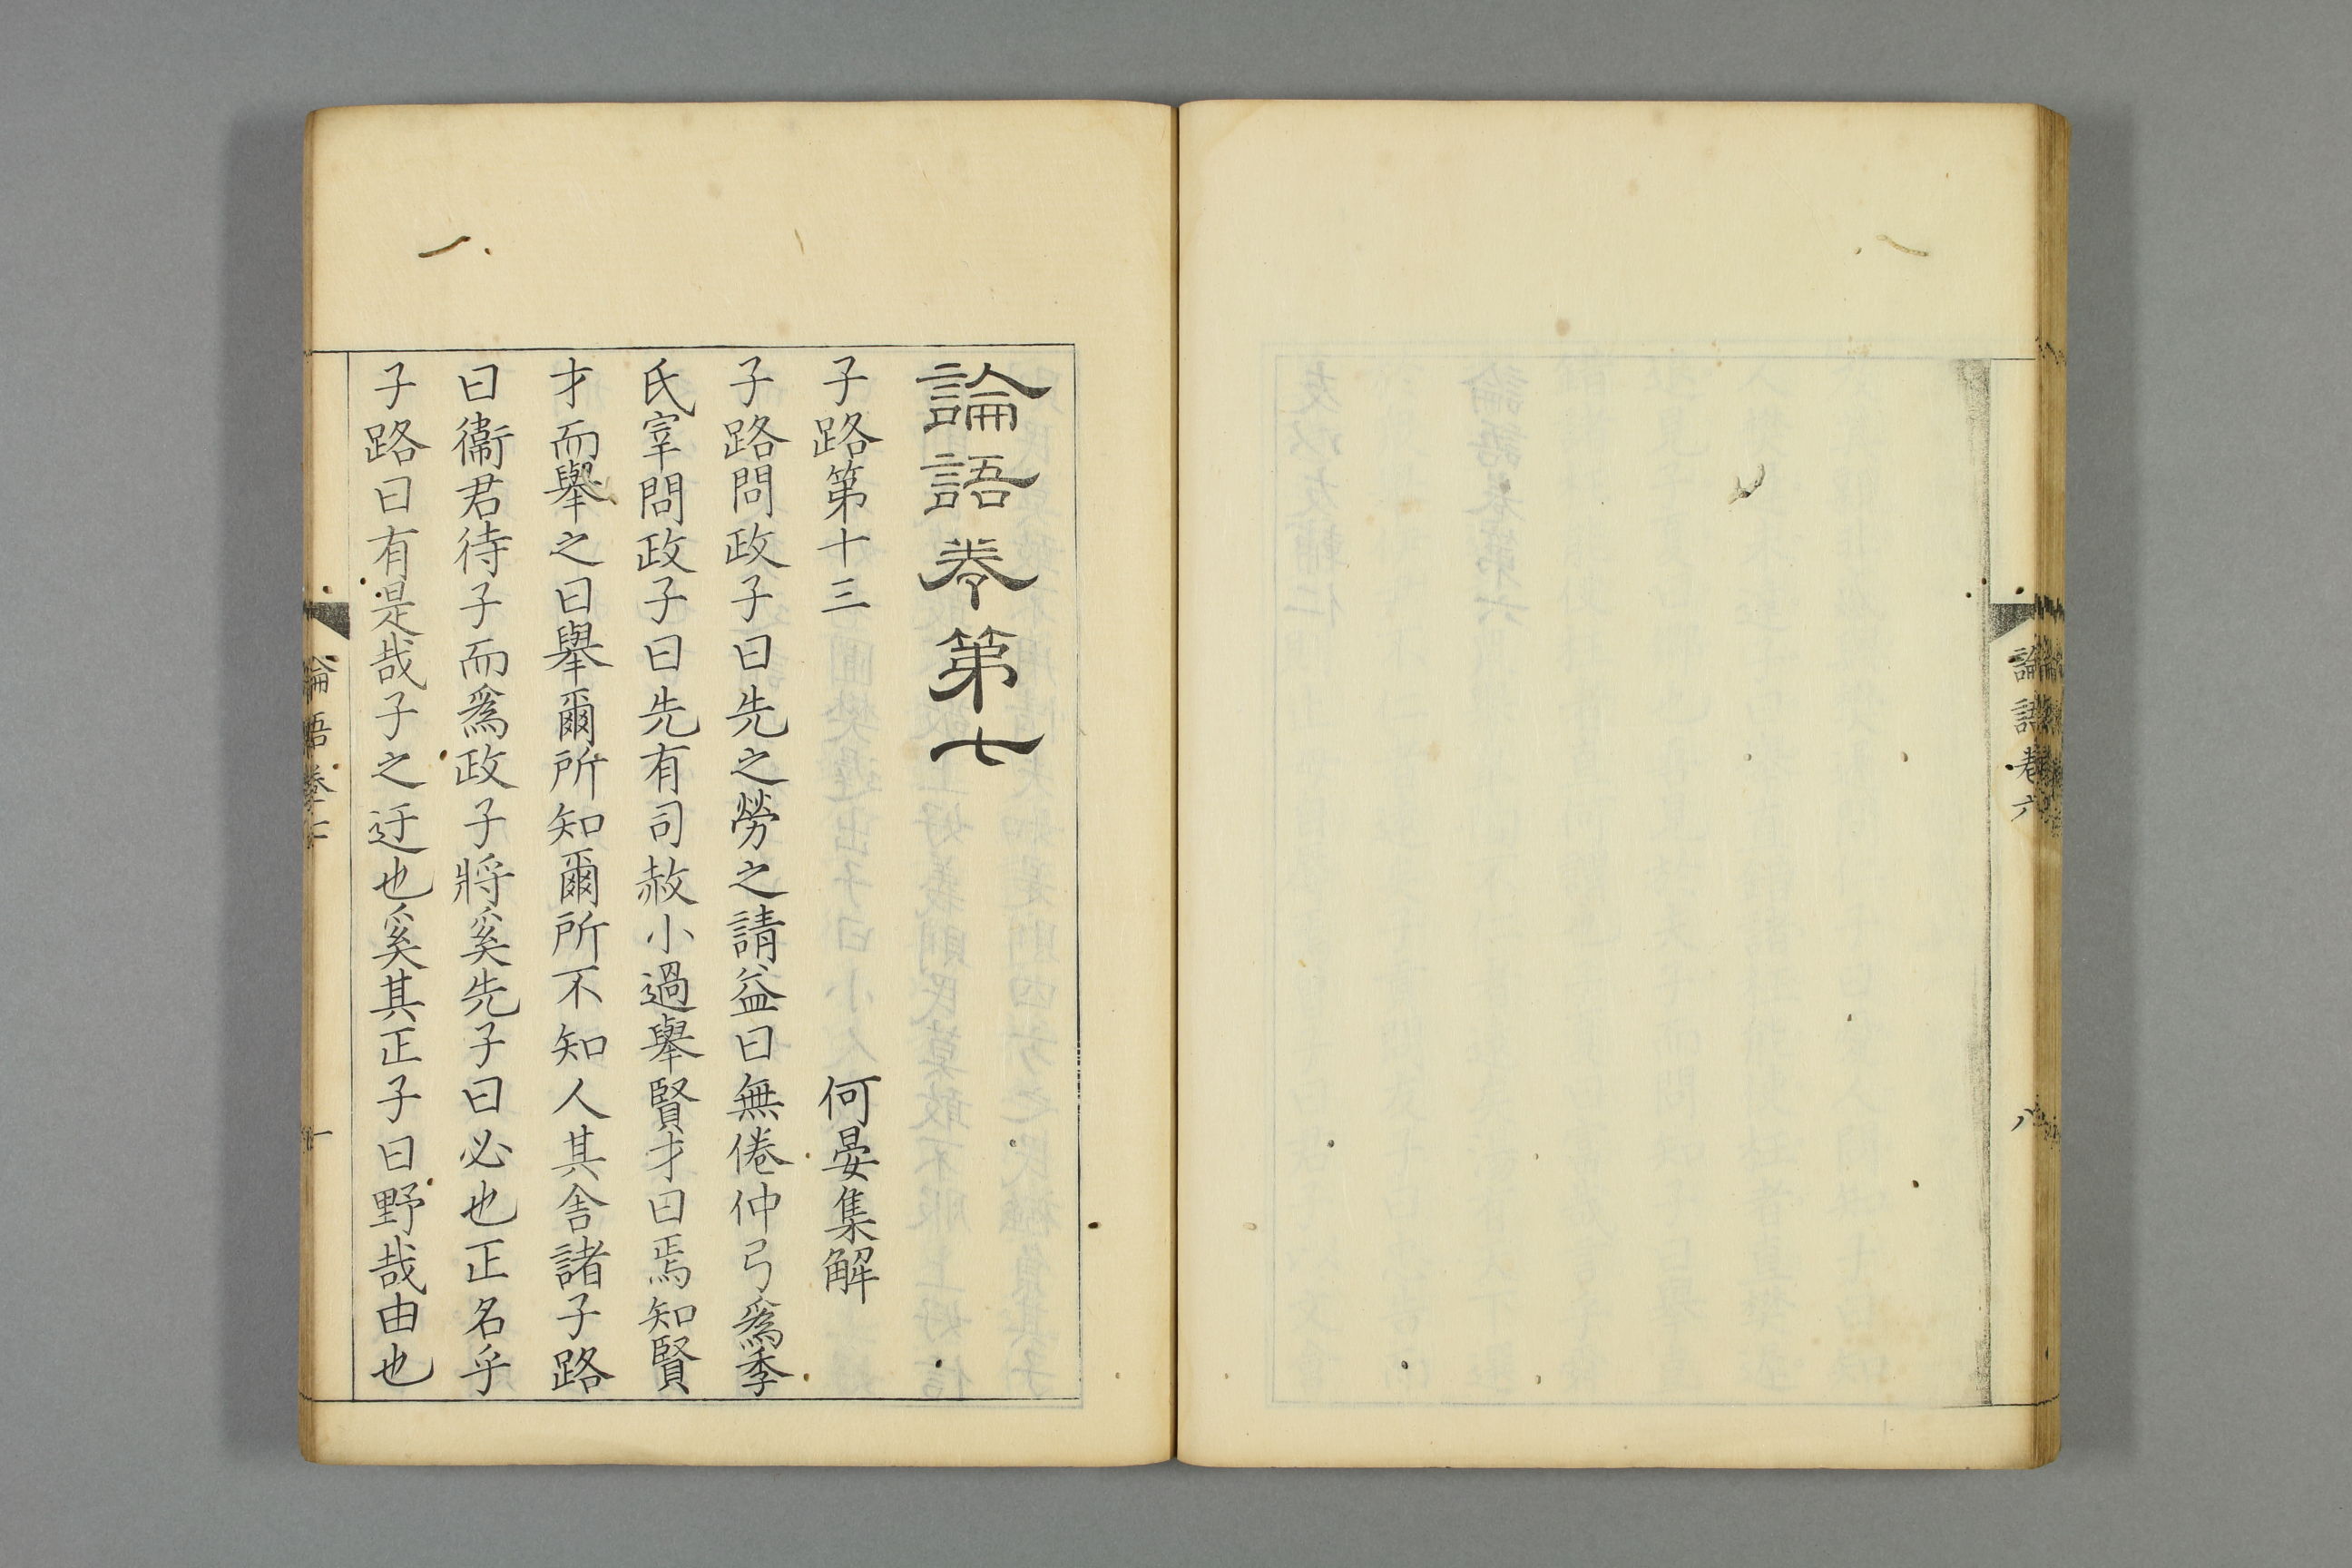 論語卷六
八
論語卷第七
子路第十三 何晏集解
子路問政子曰先之勞之請益曰無倦仲弓爲季
氏宰問政子曰先有司赦小過舉賢才曰焉知賢
才而舉之曰舉爾所知爾所不知人其舍諸子路
曰衞君待子而爲政子將奚先子曰必也正名乎
子路曰有是哉子之迂也奚其正子曰野哉由也
論語卷七
一